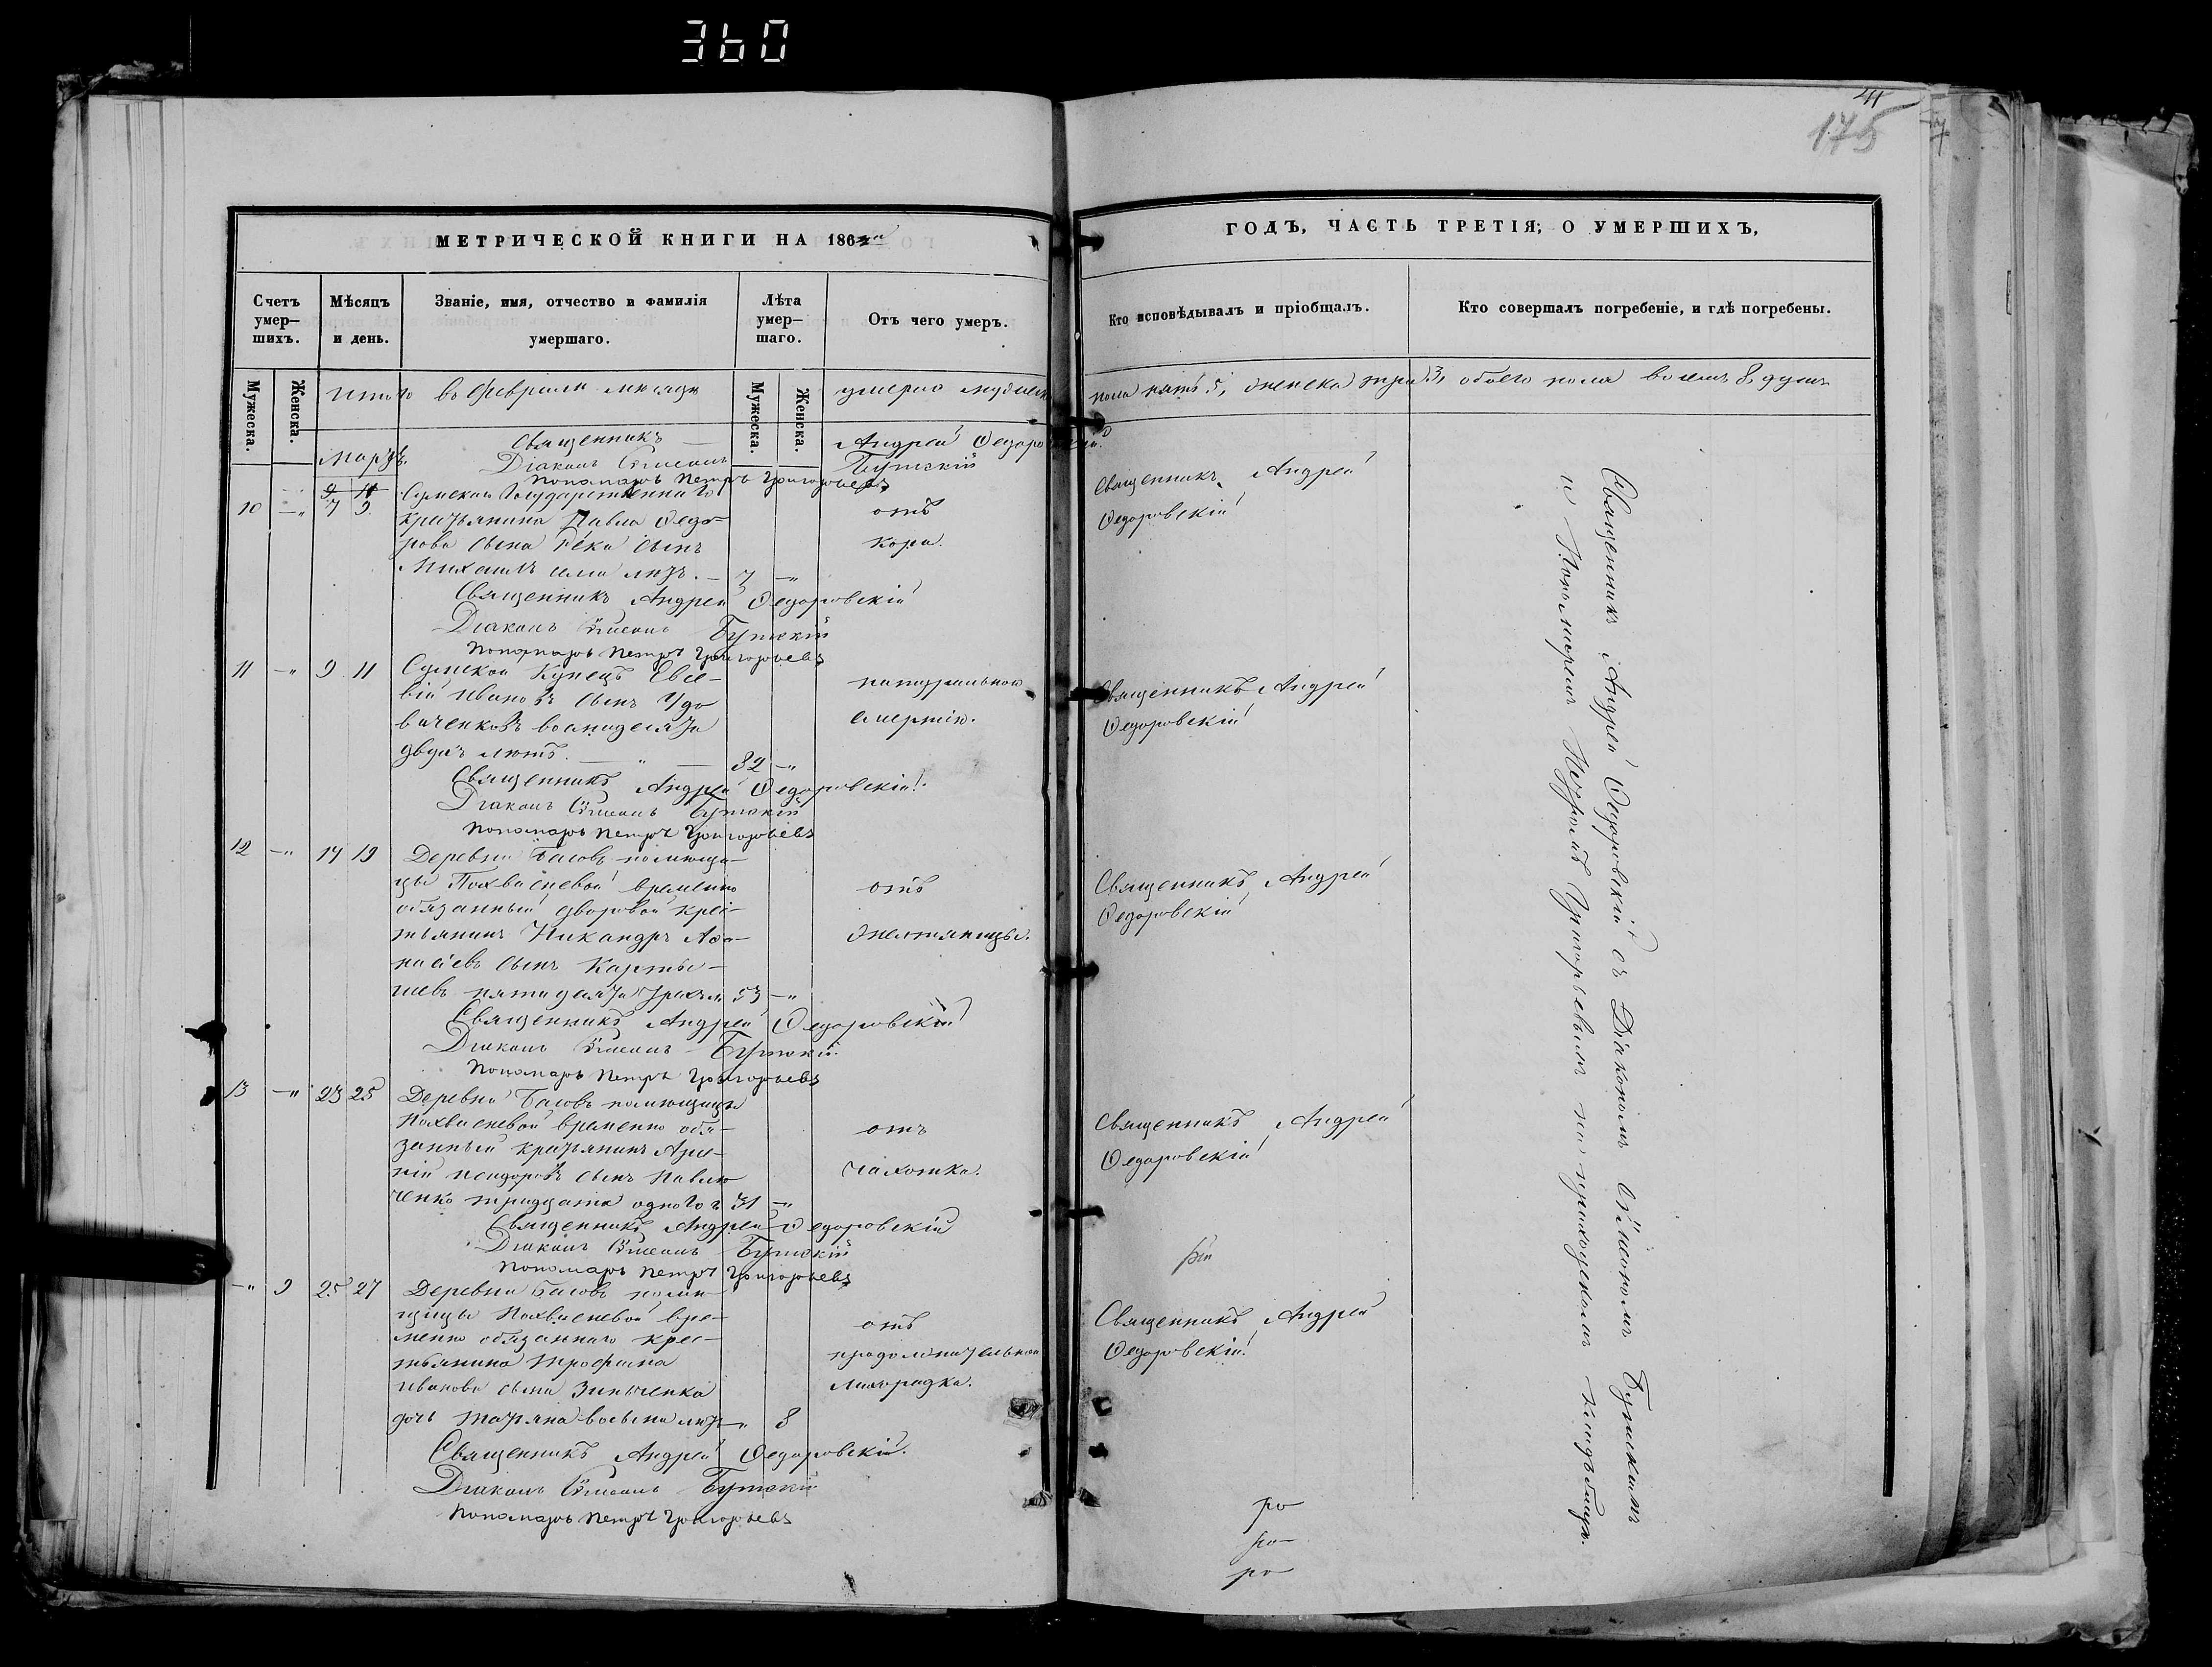 360
41
175
МЕТРИЧЕСКОЙ КНИГИ НА 186
ГОДЪ, ЧАСТЬ ТРЕТІЯ, О УМЕРШИХЪ,
Счетъ умер-шихъ.
Мѣсяцъ и день.
Званіе, имя, отчество и фамилія умершаго.
Лѣта умер-шаго.
Отъ чего умеръ.
Кто исповѣдывалъ и пріобщалъ.
Кто совершалъ погребеніе, и гдѣ погребены.
Мужеска.
Женска.
Мужеска.
Женска.
Итого въ Февралѣ мѣсяцѣ умерло мужеска пола пять 5, женска три 3, обоего пола восемь 8 душъ
Священникъ Андрей Федоровскій
Мартъ.
Діаконъ Сѵмеонъ Бутскій
Пономарь Петръ Григорьевъ
9 11
10 -" 7 9
Сумской Государственнаго
крестьянина Павла Федо-
рова сына сынъ
Михаилъ семи лѣтъ. 7 -"
отъ
кора.
Священникъ Андрей
Федоровскій
Священникъ Андрей Федоровскій
Діаконъ Сѵмеонъ Бутскій
Пономарь Петръ Григорьевъ
11 -" 9 11
Сумской Купецъ Евсе-
вій Ивановъ сынъ Удо
виченковъ восмидесяти
двухъ лѣтъ. 82 -"
натуральною
смертію.
Священникъ Андрей
Федоровскій
Священникъ Андрей Федоровскій.
Діаконъ Сѵмеонъ Бутскій
Пономарь Петръ Григорьевъ
12 -" 17 19
Деревни Басовъ помѣщи-
цы Похвисневой временно
обязанный дворовой кре-
стьянинъ Никандръ Аѳа-
насіевъ сынъ Карты-
шевъ пятидесяти трехъ л. 53 -"
отъ
жостяницы.
Священникъ Андрей
Федоровскій
Священникъ Андрей Федоровскій
Діаконъ Сѵмеонъ Бутскій.
Пономарь Петръ Григорьевъ
13 -" 23 25
Деревни Басовъ помѣщицы
Похвисневой временно обя-
занный крестьянинъ Арсе-
ній сынъ Павлю
ченко тридцати одного г. 31 -"
отъ
чахотки.
Священникъ Андрей
Федоровскій
Священникъ Андрей Федоровскій
Діаконъ Сѵмеонъ Бутскій
Пономарь Петръ Григорьевъ
-" 9 25 27
Деревни Басовъ помѣ-
щицы Похвисневой вре-
менно обязаннаго крес-
тьянина Трофима
Иванова сына Зинченка
дочь Татьяна восьми лѣтъ -" 8
отъ
продолжительной
лихорадки.
Священникъ Андрей
Федоровскій.
Священникъ Андрей Федоровскій.
Діаконъ Сѵмеонъ Бутскій
Пономарь Петръ Григорьевъ
Священникъ Андрей Федоровскій съ Діакономъ Сѵмеономъ Бутскимъ
и Пономаремъ Петромъ Григорьевымъ на приходскомъ кладбищѣ.
ро
ро
ро